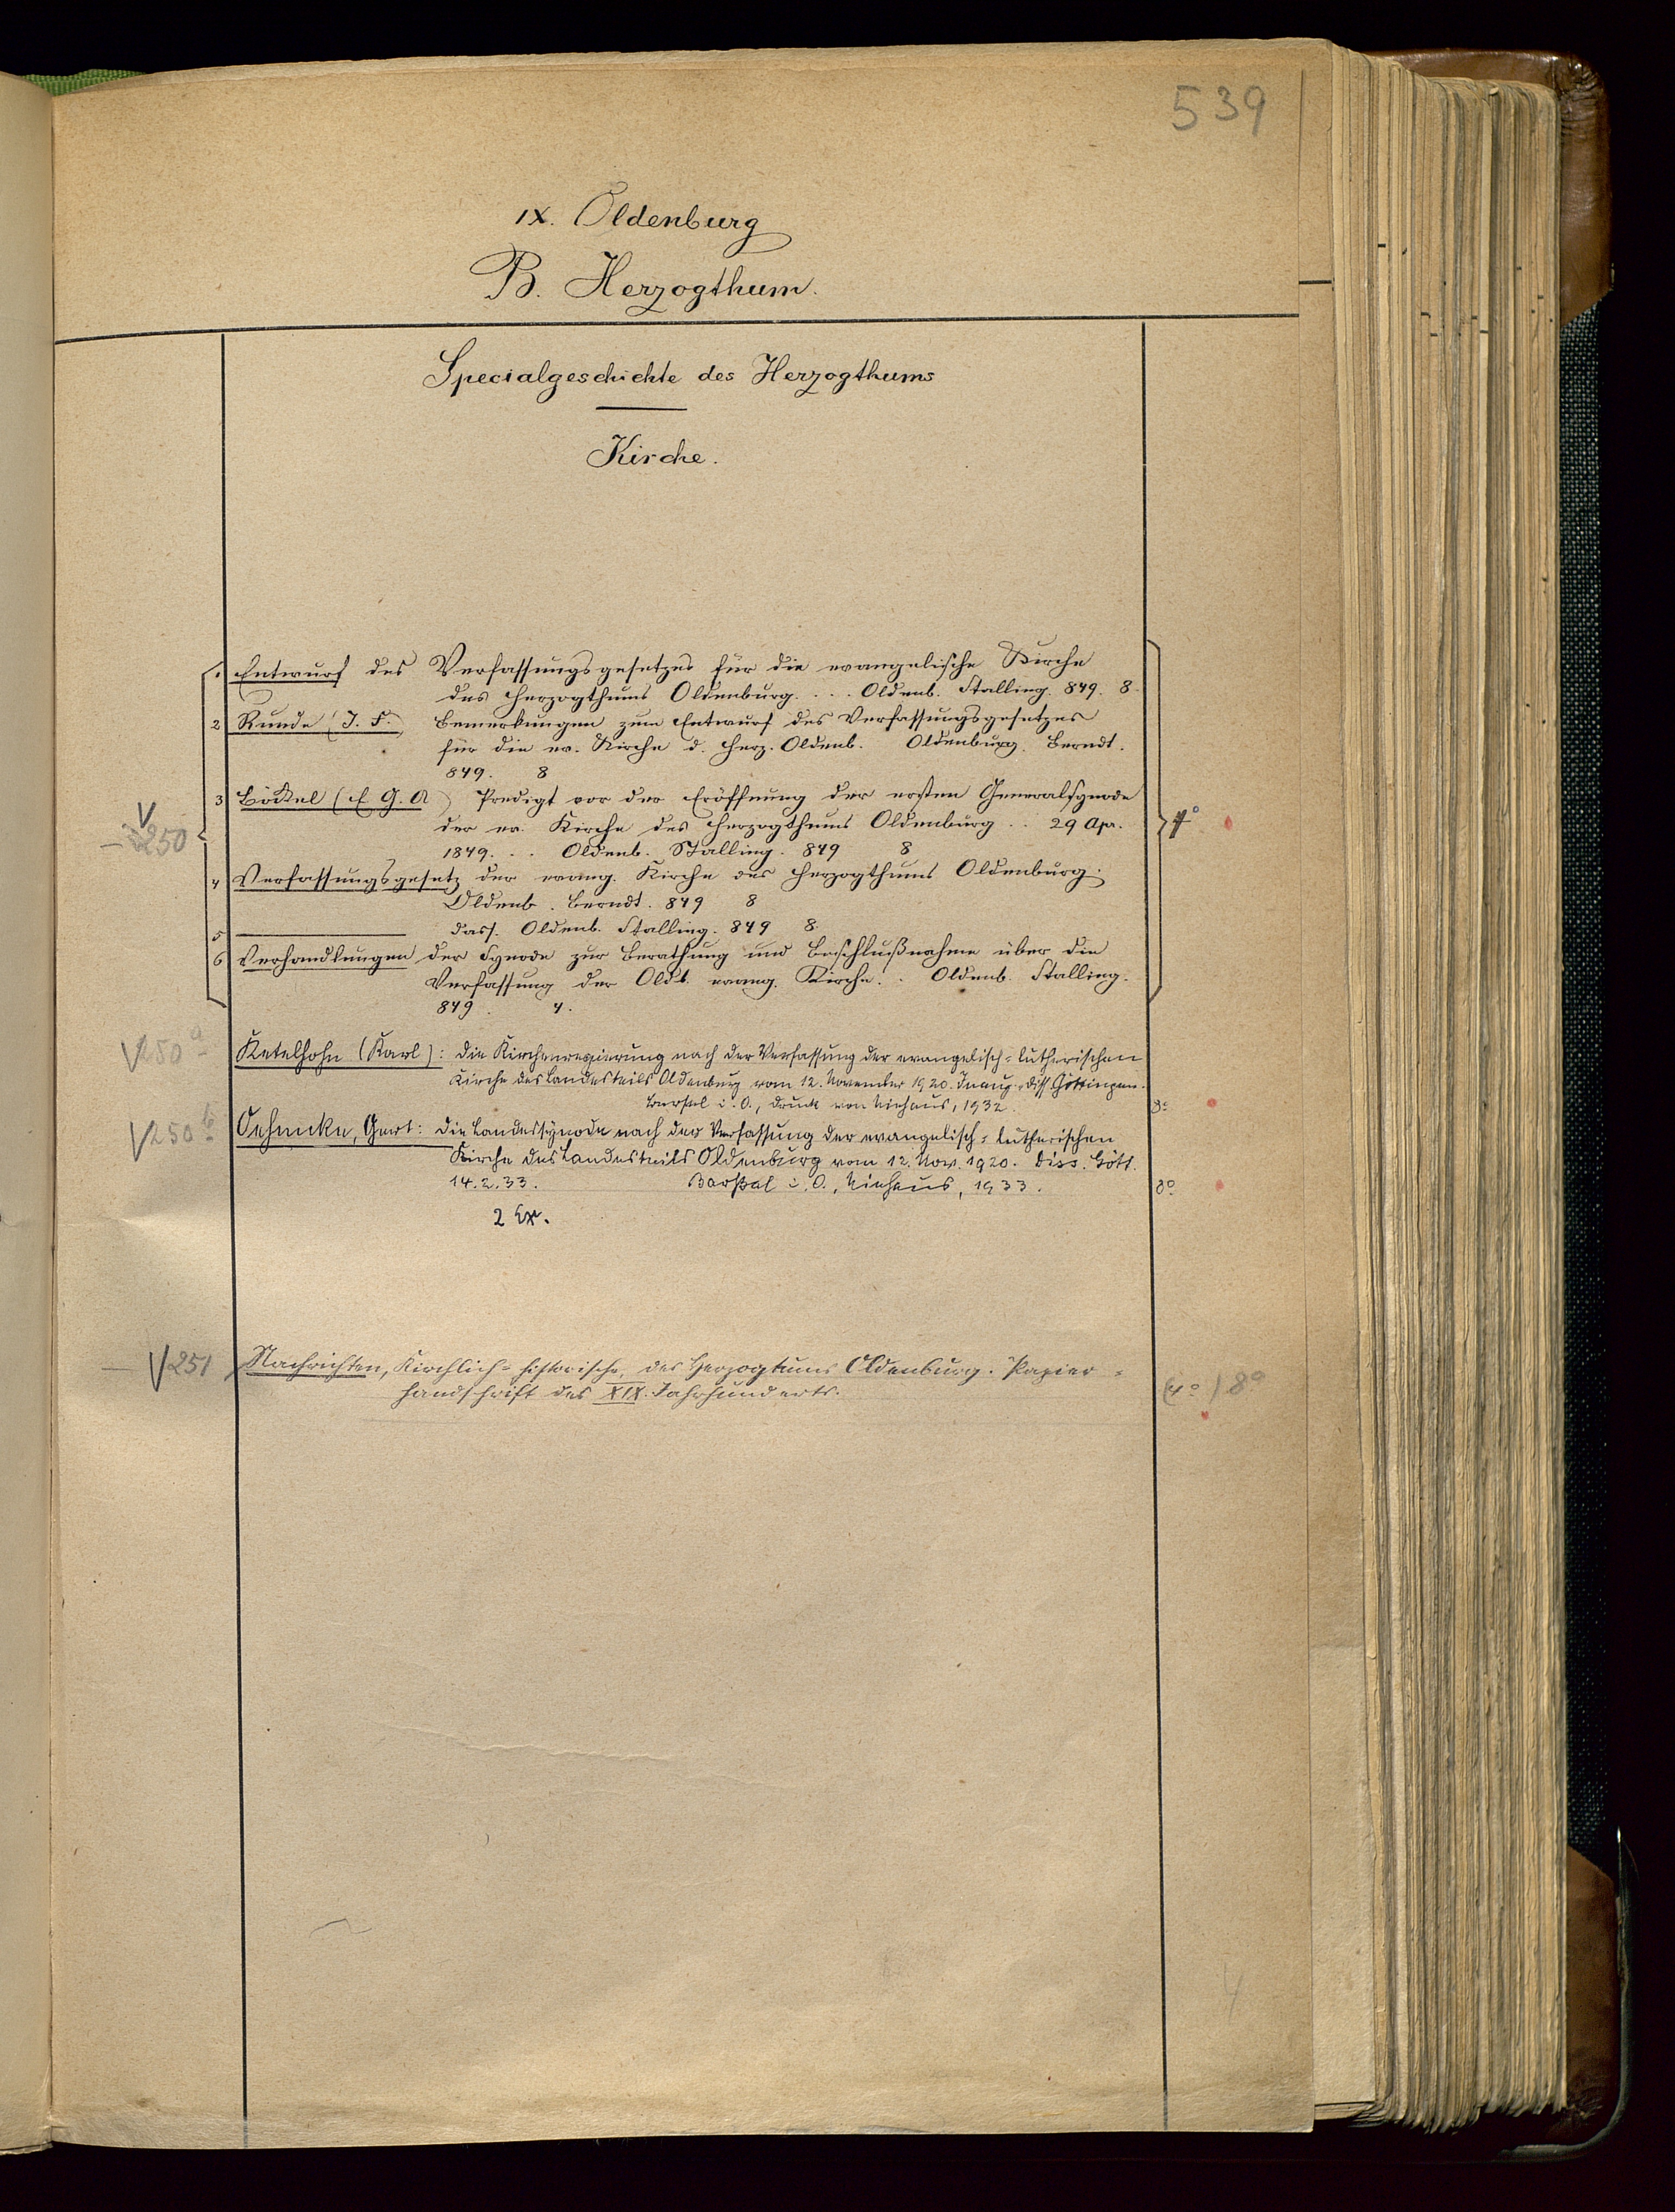 539
IX. Oldenburg
B. Herzogthum.
Specialgeschichte des Herzogthums
Kirche.
1 Entwurf des Verfassungsgesetzes für die evangelische Kirche
des Herzogthums Oldenburg. . . . Oldenb. Stalling. 849. 8
2 Runde (J. F.) Bemerkungen zum Entwurf des Verfassungsgesetzes
für die ev. Kirche d. Herz. Oldenb. Oldenburg. Berndt.
849. 8
3 Böckel (E G. A) Predigt vor der Eröffnung der ersten Generalsynode
V 250 der ev. Kirche des Herzogthums Oldenburg . . 29 Apr. 4°
1849. . . Oldenb. Stalling. 849 8
4 Verfassungsgesetz der evang. Kirche des Herzogthums Oldenburg.
Oldenb. Berndt. 849 8
5 dass. Oldenb. Stalling. 849 8.
6 Verhandlungen der Synode zur Berathung und Beschlußnahme über die
Verfassung der Oldb. evang. Kirche. . Oldenb. Stalling.
849. 4.
V250a Ketelhohn (Karl): Die Kirchenregierung nach der Verfassung der evangelisch-lutherischen
Kirche des Landesteils Oldenburg vom 12. November 1920. Inaug.-Diss. Göttingen.
Barßel i. O., Druck von Niehaus, 1932. 8°
V250b Oehmcke, Gert: Die Landessynode nach der Verfassung der evangelisch-lutherischen
Kirche des Landesteils Oldenburg vom 12. Nov. 1920. Diss. Gött.
14.2.33. Barßel i. O., Niehaus, 1933. 8°
2 Ex.
V251 Nachrichten, Kirchlich-historische, des Herzogtums Oldenburg. Papier-
handschrift des XIX. Jahrhunderts. (4°) 8°